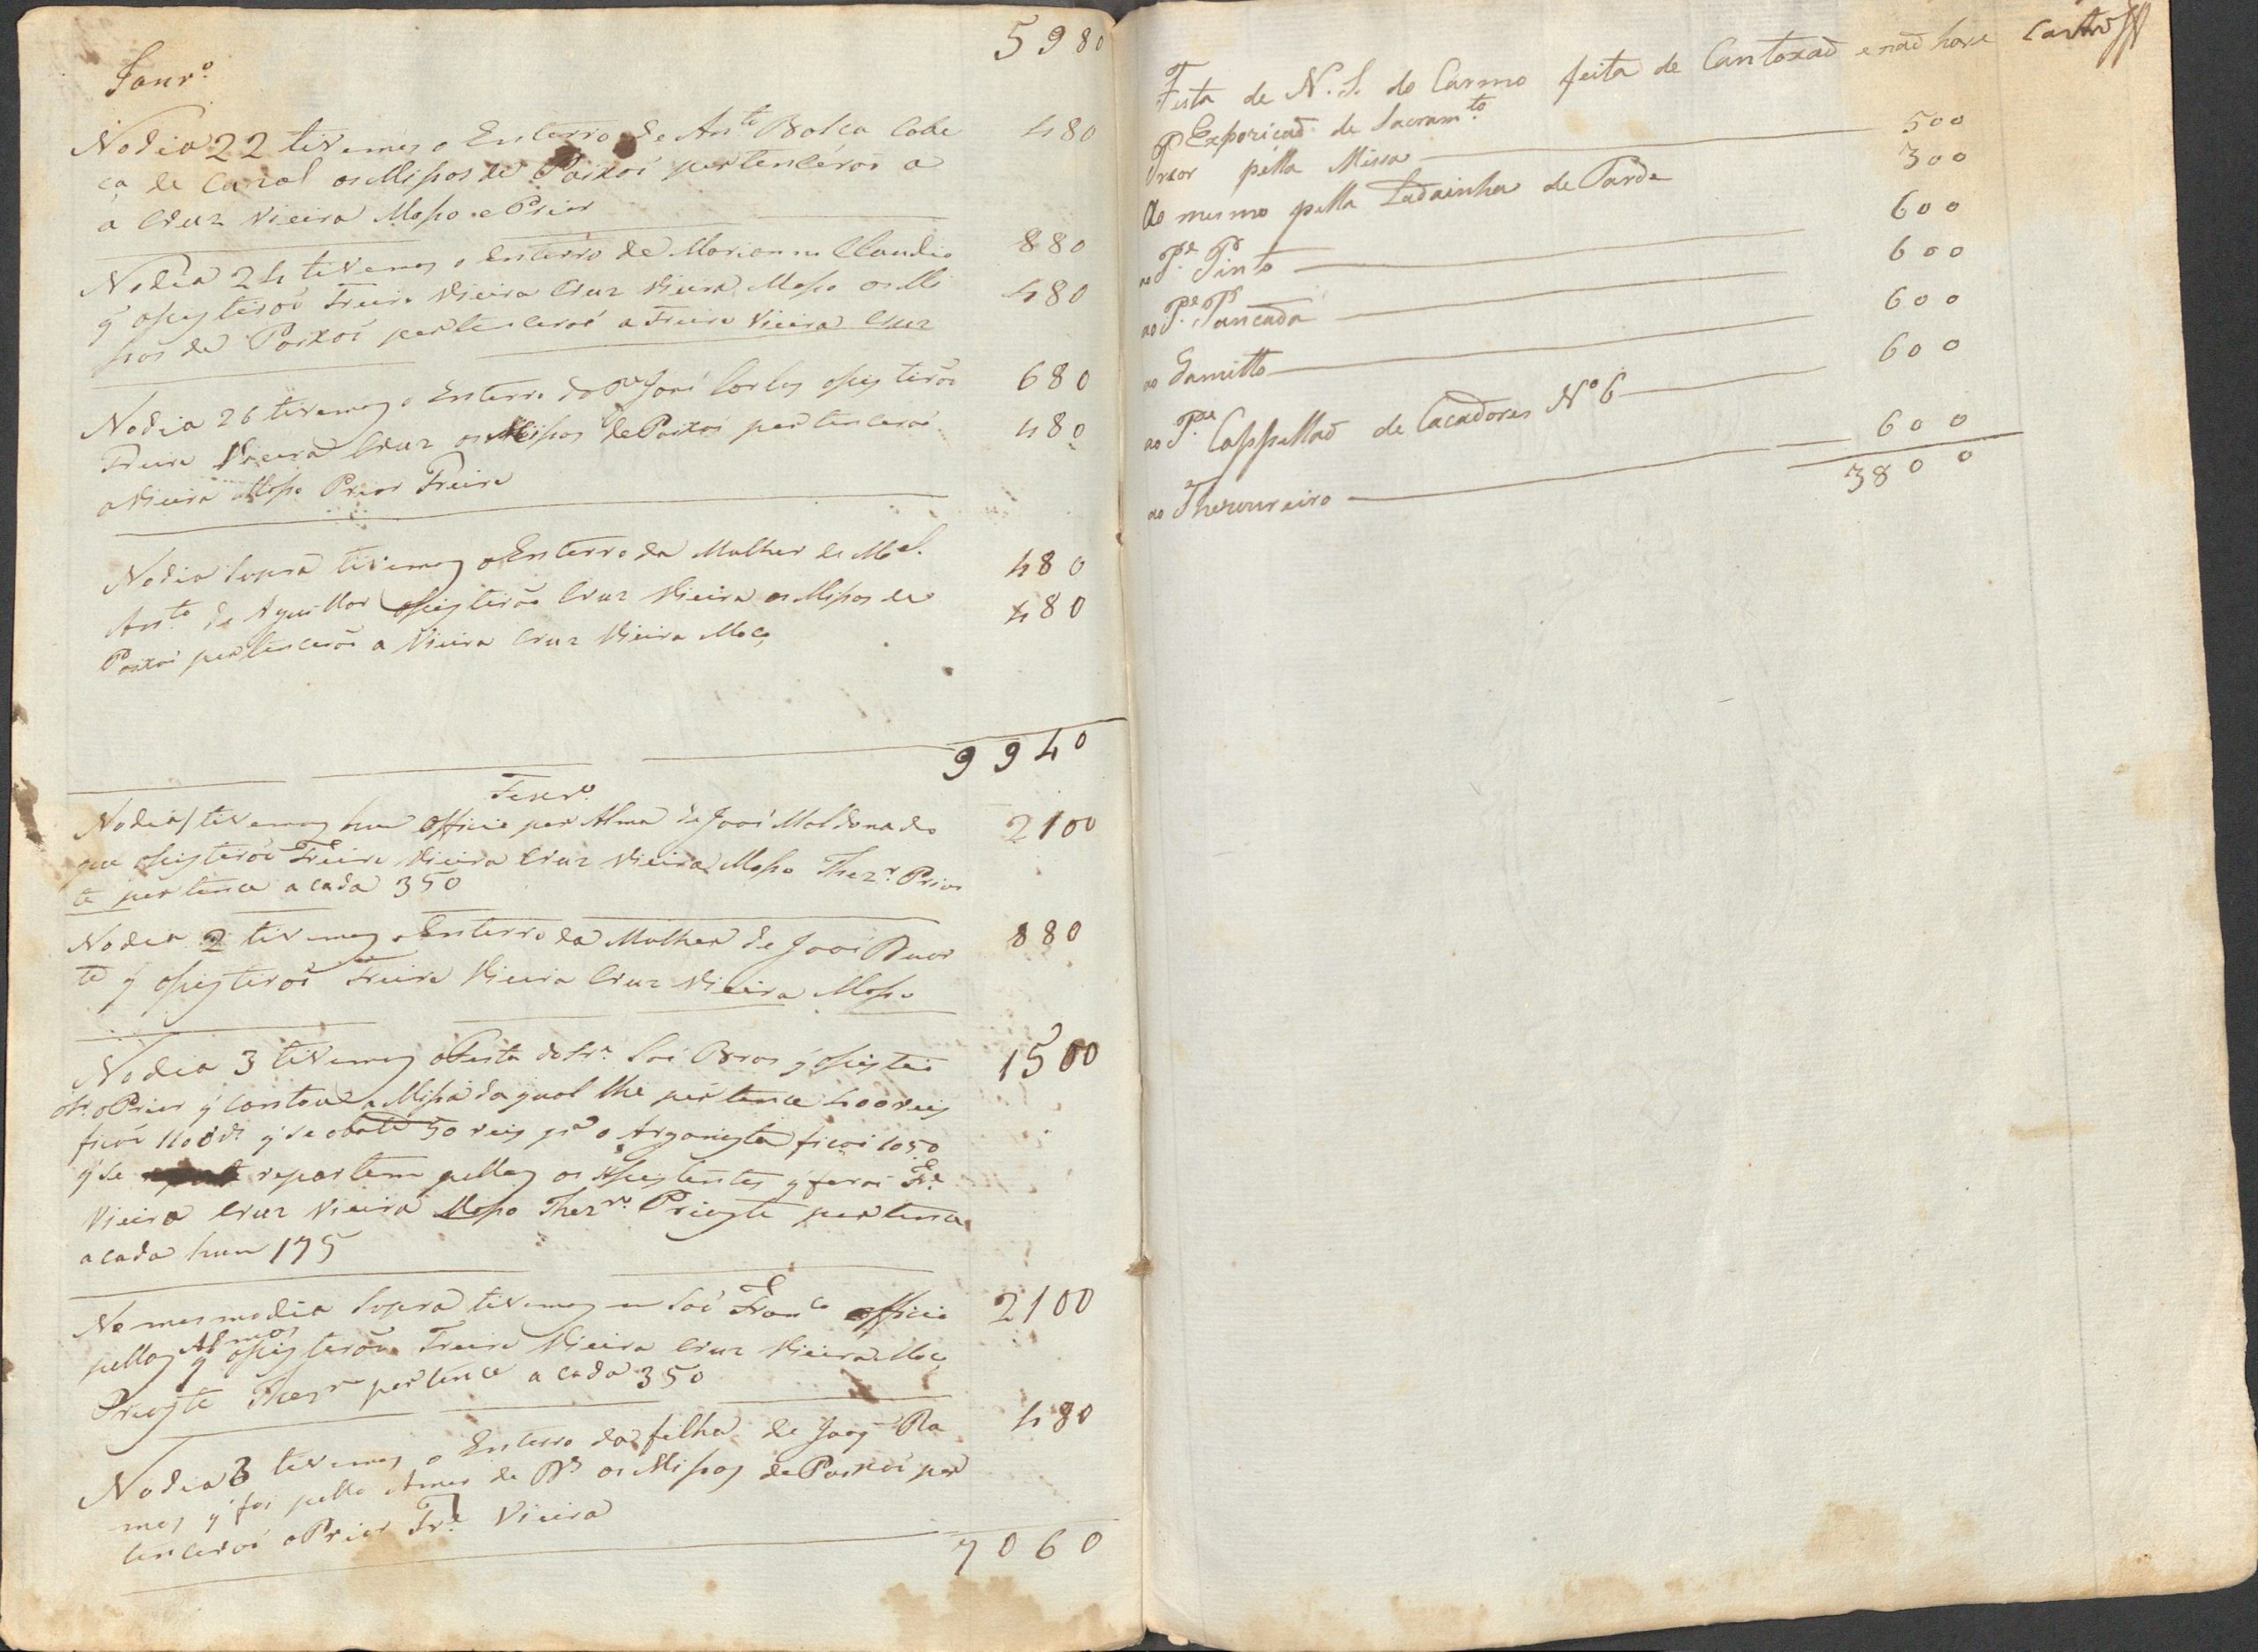 5980
Janrº
No dia 22 tivemos o Enterro de Antº Balça Cabe 480
ça de Canal os Missos de Paixoi pertencéraõ a
a Cruz Vieira Mosso e Prior
No dia 24 tivemos o enterro de Marianna Claudia 880
q̃ assisteroi Freire Vieira Cruz Vieira Mosso os Mi 480
ssos de Paixoi pertenceroi a Freire Vieira Cruz
No dia 26 tivemos o Enterro do Pe José Carlos assisteroi 680
Freire Vieira Cruz os Missos de Paixoi pertenceroi 480
a Vieira Mosso Prior Freire
No dia supra tivemos o Enterro da Mulher de Mel. 480
Antº de Aguillar assisteroi Cruz Vieira os Missos de 480
Paixoi pertenceroi a Vieira Cruz Vieira Moço
9940
Feverº
No dia 1 tivemos hum Officio por Alma de Jooi Maldonado 2100
que assisteroi Freire Vieira Cruz Vieira Mosso Thezrº Prios
te pertence a cada 350
No dia 2 tivemos o Enterro da Mulher de Jooi Duar 880
te q̃ assisteroi Freire Vieira Cruz Vieira Mosso
No dia 3 tivemos a Festa do Sr. Soi Bras q̃ assistio 1500
o Sr. o Prior q̃ Cantou a Missa da qual lhe pertence 400 reis
ficoi 1100 rs q̃ se abate 50 reis pª o Arganista ficoi 1050
q̃ se repartem pellos os Assistentes q̃ foroi Fre
Vieira Cruz Vieira Mosso Thezrº Prioste pertence
a cada hum 175
No mesmo dia supra tivemos em Soi Franco officio 2100
pellas Almas q̃ assisteroi Freire Vieira Cruz Vieira Moço
Prioste Thezrº pertence a cada 350
No dia 6 tivemos o Enterro da filha de Joaq̃ Ra 480
mos q̃ foi pello Amor de Ds os Missos de Paixoi per
tenceroi a Prior Fre Vieira
7060
Festa de N. S. do Carmo feita de Cantoxaõ e naõ hove
Expozicaõ de Sacramto
Prior pella Missa 500
Ao mesmo pella Ladainha de Tarde 300
ao Pe Pinto 600
ao Pe Pancada 600
ao Gamitto 600
ao Pe Cappellaõ de Cacadores Nº 6 600
ao Thezoureiro 600
3800